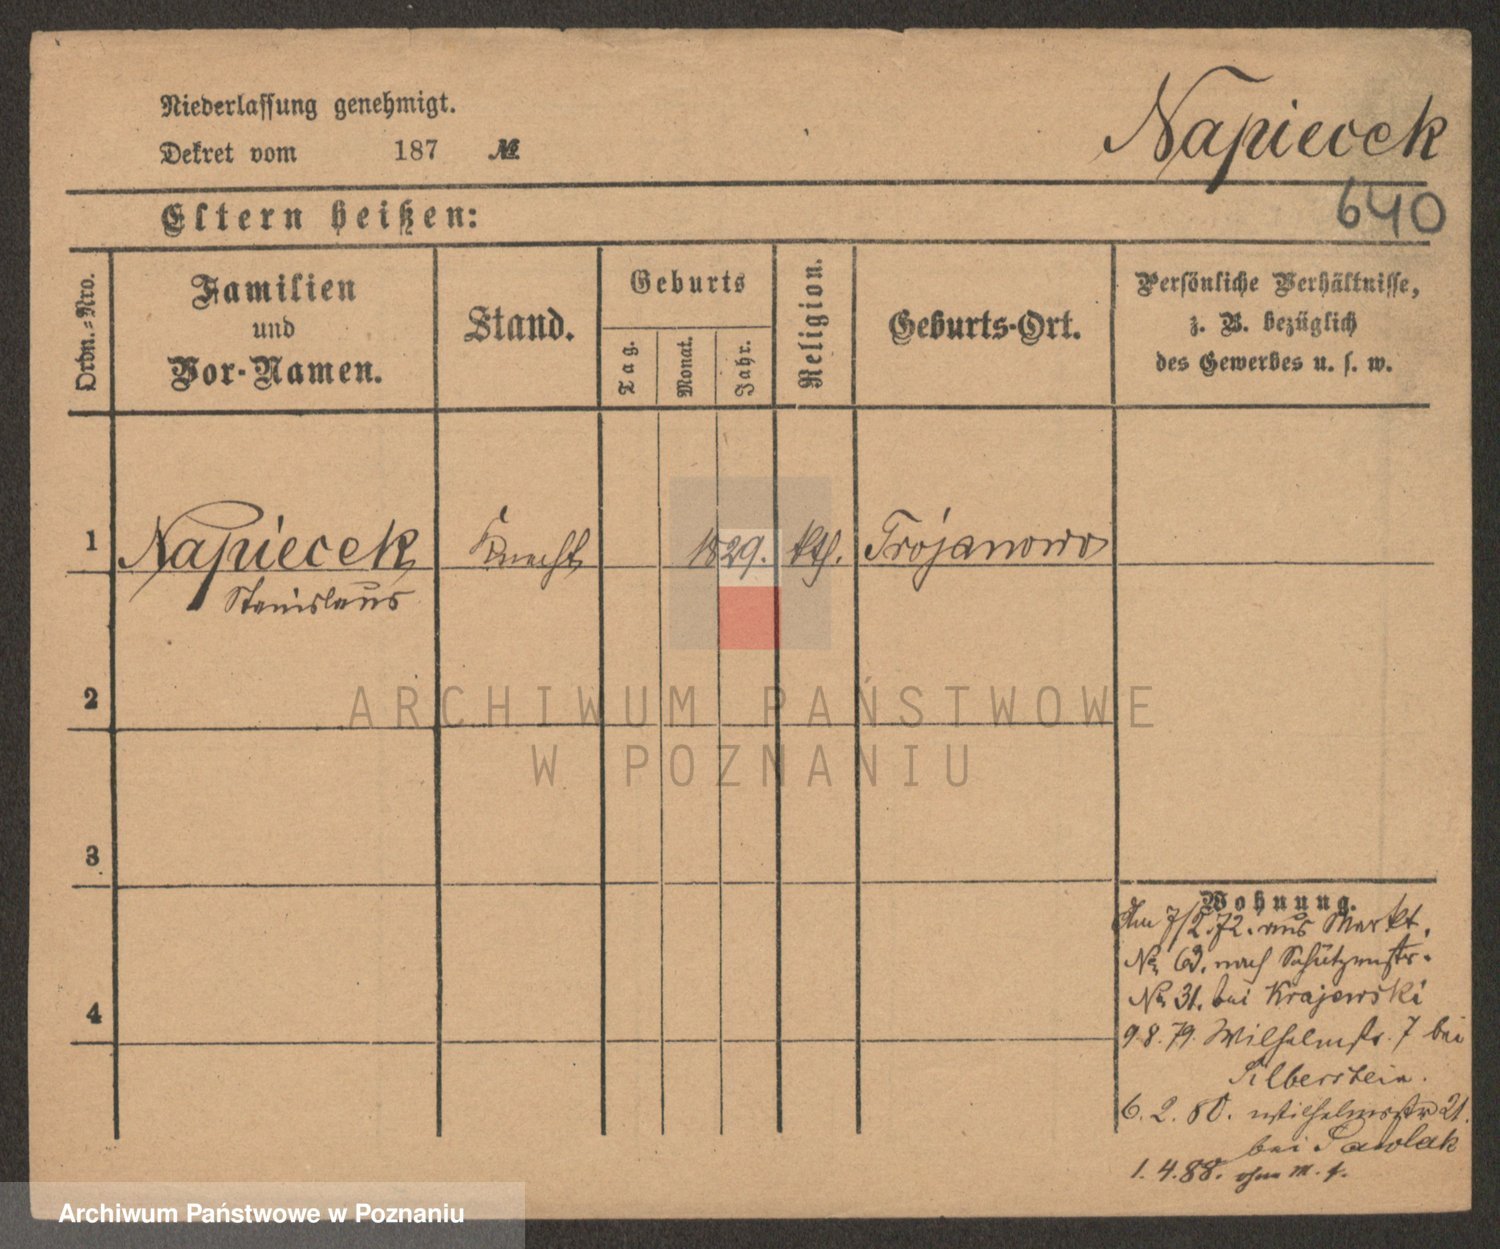 Niederlassung genehmigt.
Dekret vom 187 №
Napiecek
640
Eltern heißen:
Ordn.-Nro.
Familien
und
Vor-Namen.
Stand.
Geburts
Tag.
Monat.
Jahr.
Religion.
Geburts-Ort.
Persönliche Verhältnisse,
z. B. bezüglich
des Gewerbes u. s. w.
1 Napiecek Knecht 1829. kth. Trójanowo
Stanislaus
2
3
4
Wohnung.
Am 7/2.72. aus Markt.
No nach Schützenstr.
No 31. bei Krajewski
9.8.79. Wilhelmstr. 7 bei
Silberstein.
6.2.80. Wilhelmsstr 21.
bei Pawlak
1.4.88. ohne
ARCHIWUM PAŃSTWOWE
W POZNANIU
Archiwum Państwowe w Poznaniu